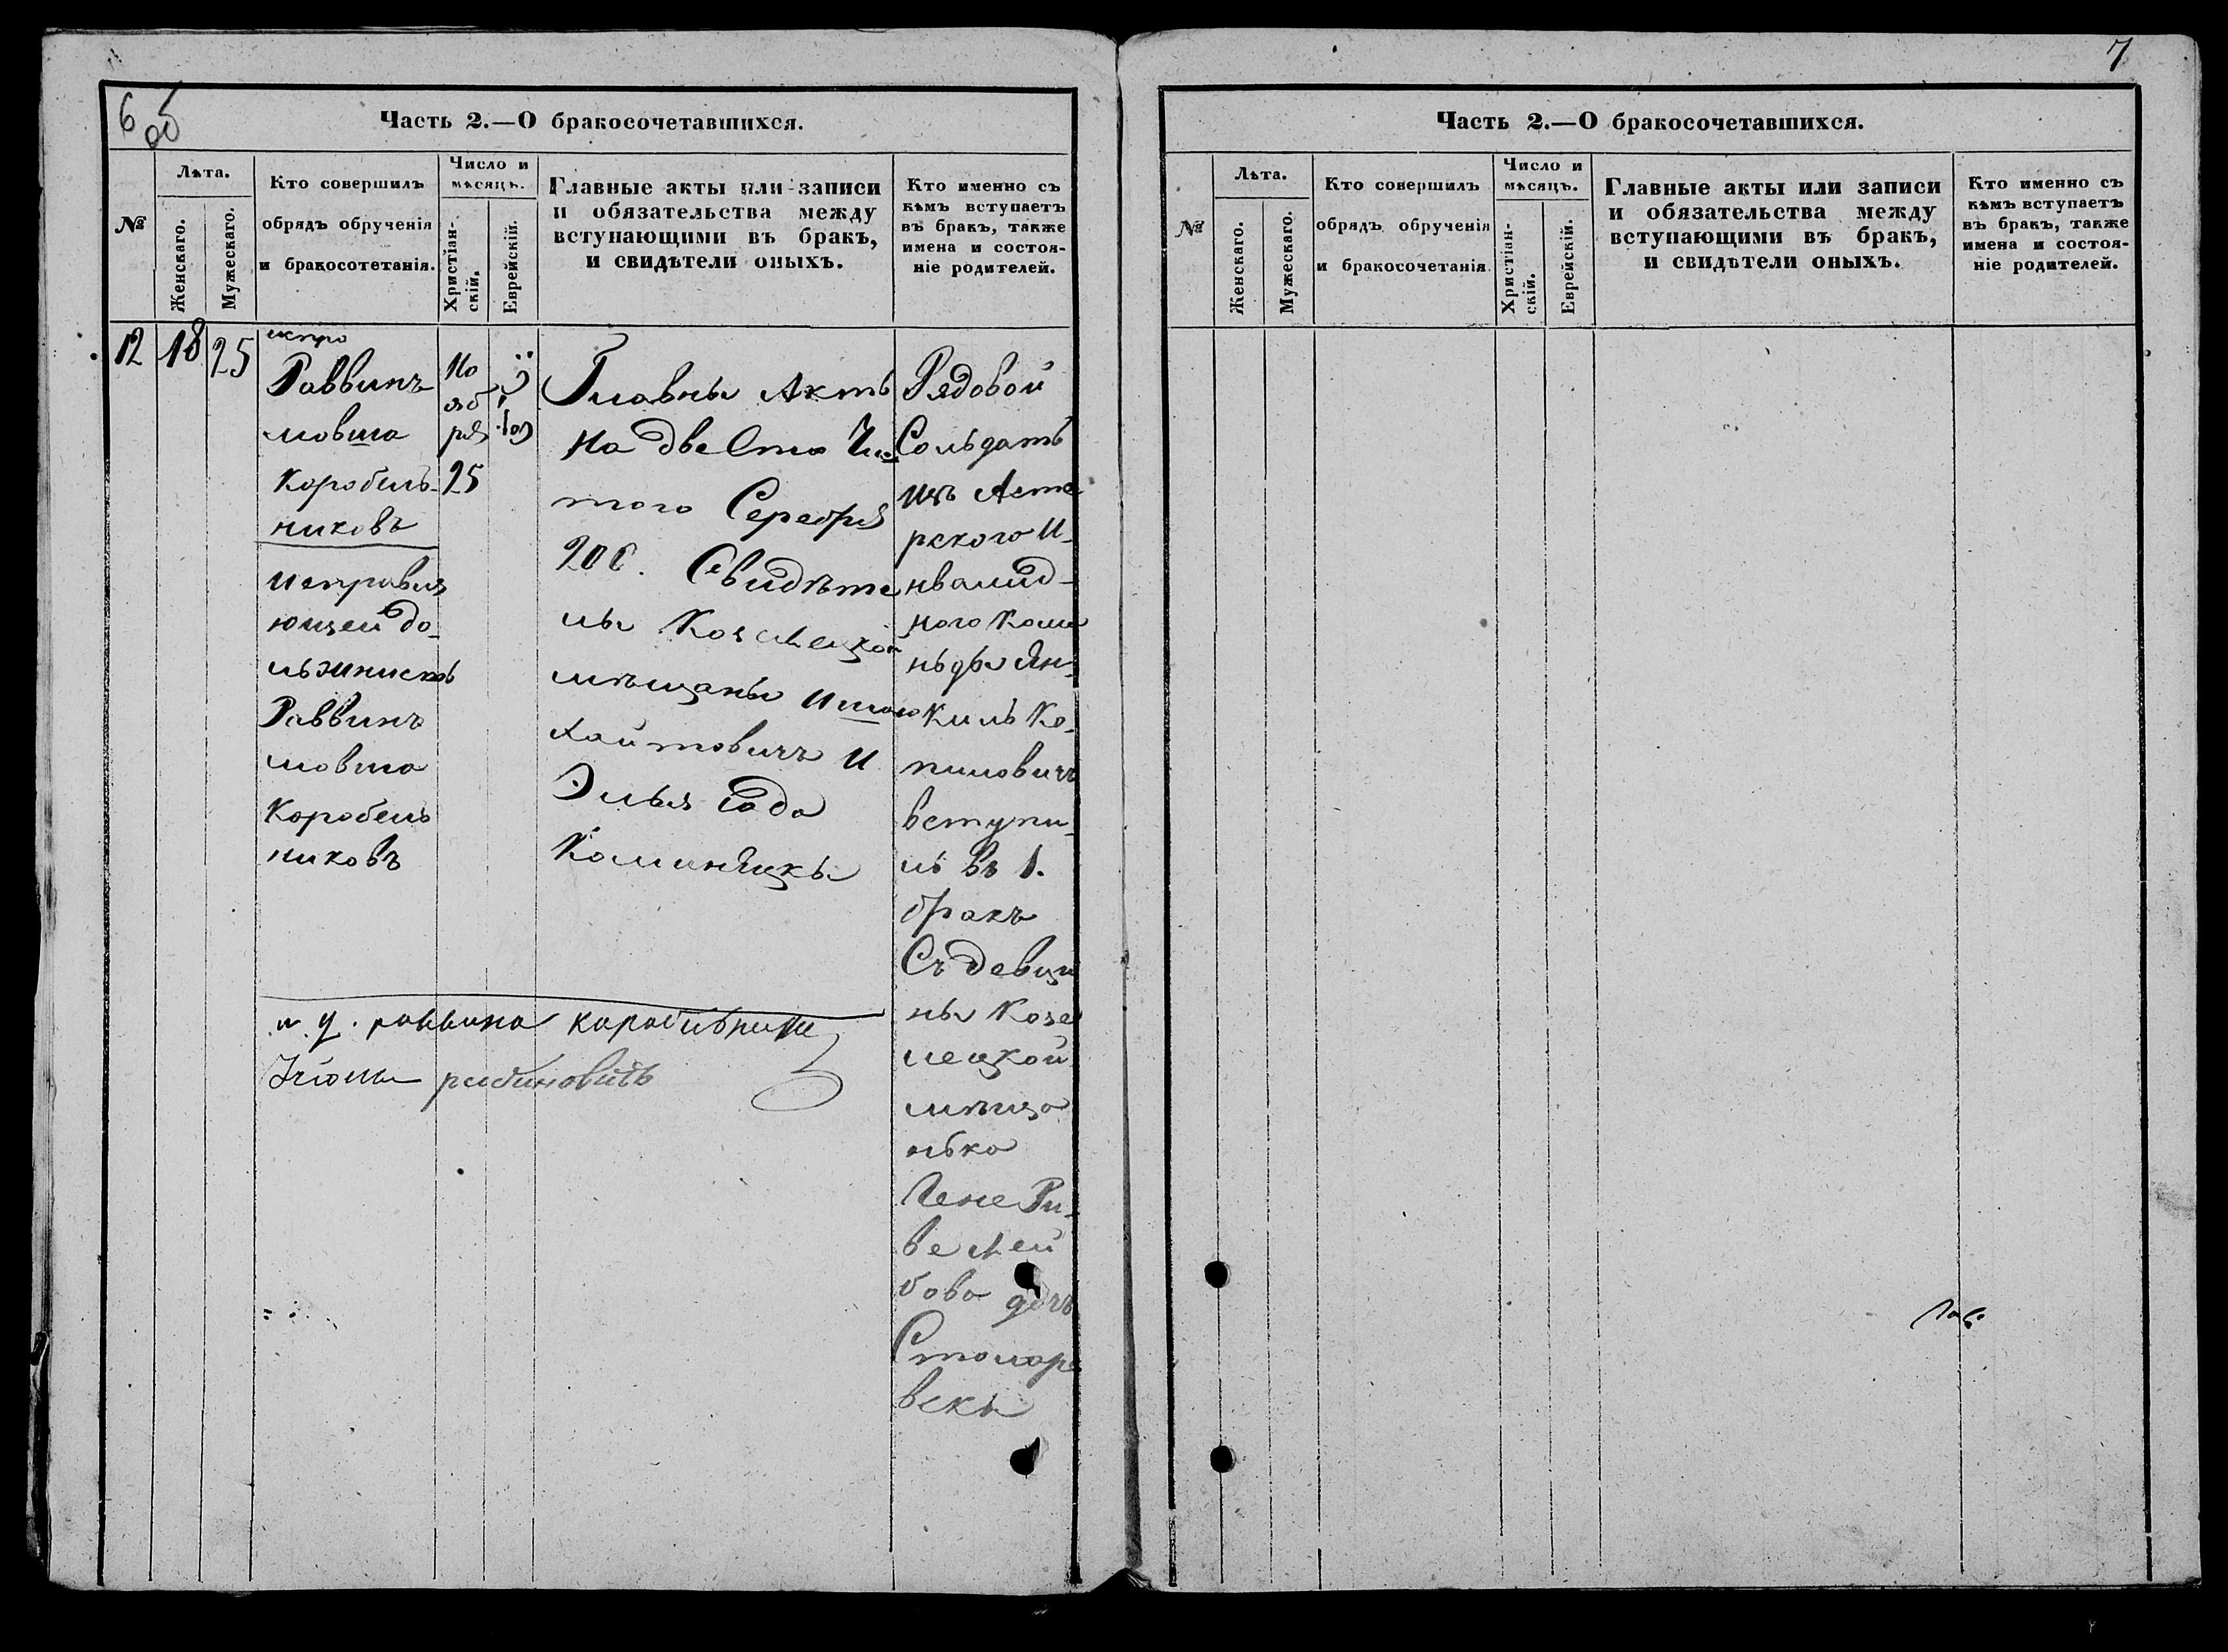 6 об
Часть 2.—О бракосочетавшихся.
№
Лѣта.
Женскаго.
Мужескаго.
Кто совершилъ
обрядъ обрученія
и бракосотетанія.
Число и
мѣсяцъ.
Христіан-
скій.
Еврейскій.
Главные акты или записи
и обязательства между
вступающими въ бракъ,
и свидѣтели оныхъ.
Кто именно съ
кѣмъ вступаетъ
въ бракъ, также
имена и состоя-
ніе родителей.
12
18
25
Раввинъ
мовша
Коробель-
никовъ
исправля
ющей до-
льжность
Раввинъ
мовша
Коробель
никовъ
Но
яб
ря
25
Главны Актъ
на двести
того Серебря
200. Свидѣте
лы
мѣщаны
и
Элья
Рядовой
Сольдатъ
изъ
рского И-
нвалид-
ного Кома
нъды Ян-
киль Ко-
пиловичъ
вступи-
лъ въ 1.
бракъ
Съ девиц
ны Козе
лецкой
мѣща
нько
Ри-
ве Лей
бова дочъ
Столяре
вскы
и. д. раввина
7
Часть 2.—О бракосочетавшихся.
№
Лѣта.
Женскаго.
Мужескаго.
Кто совершилъ
обрядъ обрученія
и бракосочетанія
Число и
мѣсяцъ.
Христіан-
скій.
Еврейскій.
Главные акты или записи
и обязательства между
вступающими въ бракъ,
и свидѣтели оныхъ.
Кто именно съ
кѣмъ вступаетъ
въ бракъ, также
имена и состоя-
ніе родителей.